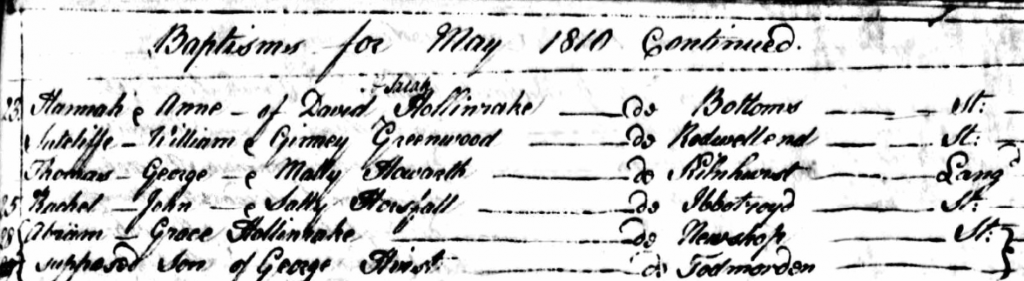 Baptisms for May 1810 Continued.
Sarah
23 Hannah & Anne - of David Hollinrake — de Bottoms — St:
Sutcliffe - William & Ginney Greenwood — de Rodwellend — St:
Thomas - George - & Mally Howarth — de Kilnhurst — Lang
25 Rachel - John - & Sally Horsfall — de Ibbotroyd — St:
28 Abriam - Grace Hollinrake — de Newshop — St:
supposed Son of George Hirst — de Todmorden